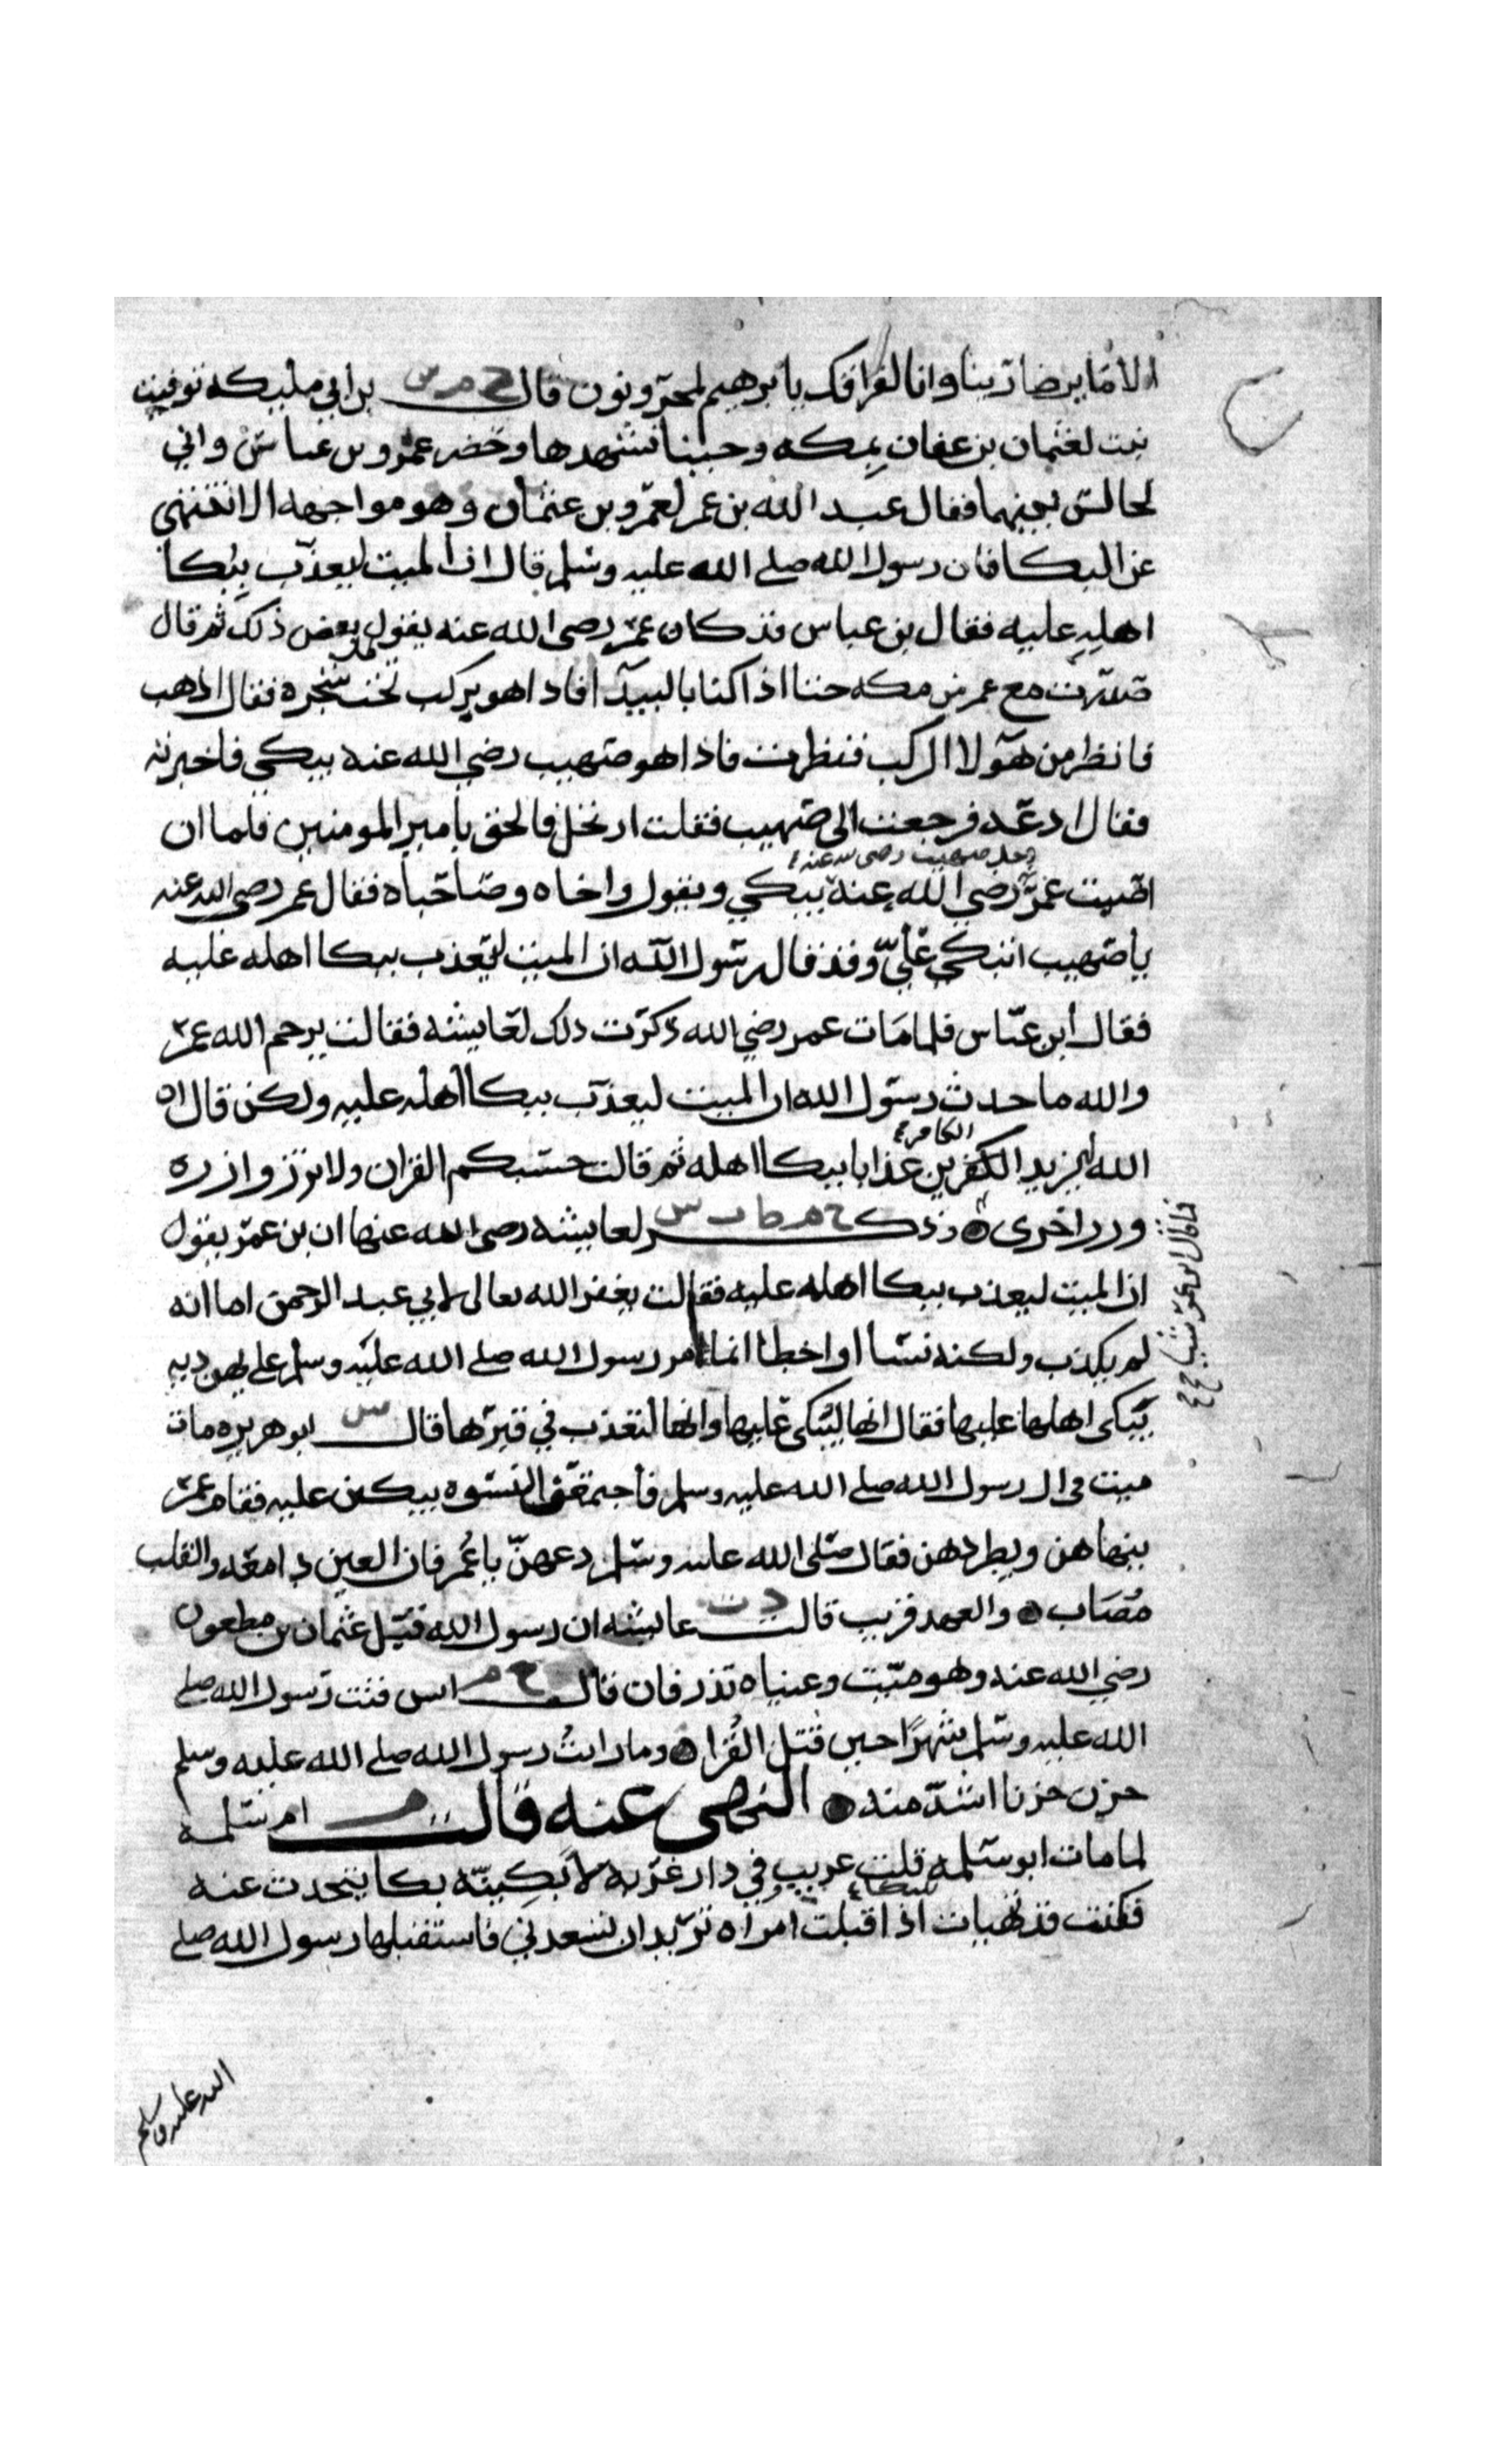 الا ما يرضا ربنا وانا لفراقك يا ابرهيم لمحزونون قال خ م س بن ابي مليكه توفيت
بنت لعثمان بن عفان بمكه وجينا نشهدها وحضر عمر وبن عباس واني
لجالس بينهما فقال عبد الله بن عمر لعمرو بن عثمان وهو مواجهه الا تنتهى
عن البكا فان رسول الله صلى الله عليه وسلم قال ان الميت ليعذب ببكا
اهله عليه فقال بن عباس قد كان عمر رضى الله عنه يقول بعض ذلك ثم قال
صدرت مع عمر من مكه حتا اذا كنا بالبيدآ فاذا هو بركب تحت شجره فقال اذهب
فانظر من هولا الركب فنظرت فاذا هو صهيب رضي الله عنه يبكي فاخبرته
فقال ادعه فرجعت الى صهيب فقلت ارتحل فالحق بامير المومنين فلما ان
دخل صهيب رضى الله عنه
اصيب عمر رضي الله عنه يبكي ويقول وا اخاه وصاحباه فقال عمر رضى الله عنه
يا صهيب اتبكي علي وقد قال رسول الله ان الميت ليعذب ببكا اهله عليه
فقال ابن عباس فلما مات عمر رضي الله ذكرت ذلك لعايشه فقالت يرحم الله عمر
والله ما حدث رسول الله ان الميت ليعذب ببكا اهله عليه ولكن قال ان
الكافر
الله ليزيد الكفرين عذابا ببكا اهله ثم قالت حسبكم القران ولا تزر وازره
وزر اخرى وذكر خ م ط ت س لعايشه رضى الله عنها ان بن عمر يقول
ان الميت ليعذب ببكا اهله عليه فقالت يغفر الله تعالى لابي عبد الرحمن اما انه
لم يكذب ولكنه نسا او اخطا انما مر رسول الله صلى الله عليه وسلم على يهوديه
يبكى اهلها عليها فقال انها ليبكى عليها وانها لتعذب في قبرها قال س ابو هريره مات
ميت من ال رسول الله صلى الله عليه وسلم فاجتمعن النسوه يبكين عليه فقام عمر
ينهاهن ويطردهن فقال صلى الله عليه وسلم دعهن يا عمر فان العين دامعه والقلب
مصاب والعهد قريب قالت د ت عايشه ان رسول الله قبل عثمان بن مظعون
رضي الله عنه وهو ميت وعيناه تذرفان قال خ م انس قنت رسول الله صلى
الله عليه وسلم شهرا حين قتل القرا وما رايت رسول الله صلى الله عليه وسلم
حزن حزنا اشد منه النهى عنه قالت م ام سلمه
لما مات ابو سلمه قلت غريب في دار غربه لابكينه بكا يتحدث عنه
للبكاء
فكنت قد تهيات اذ اقبلت امراه تريد ان تسعدني فاستقبلها رسول الله صلى
الله عليه وسلم
فما قال ابن عمر شيا